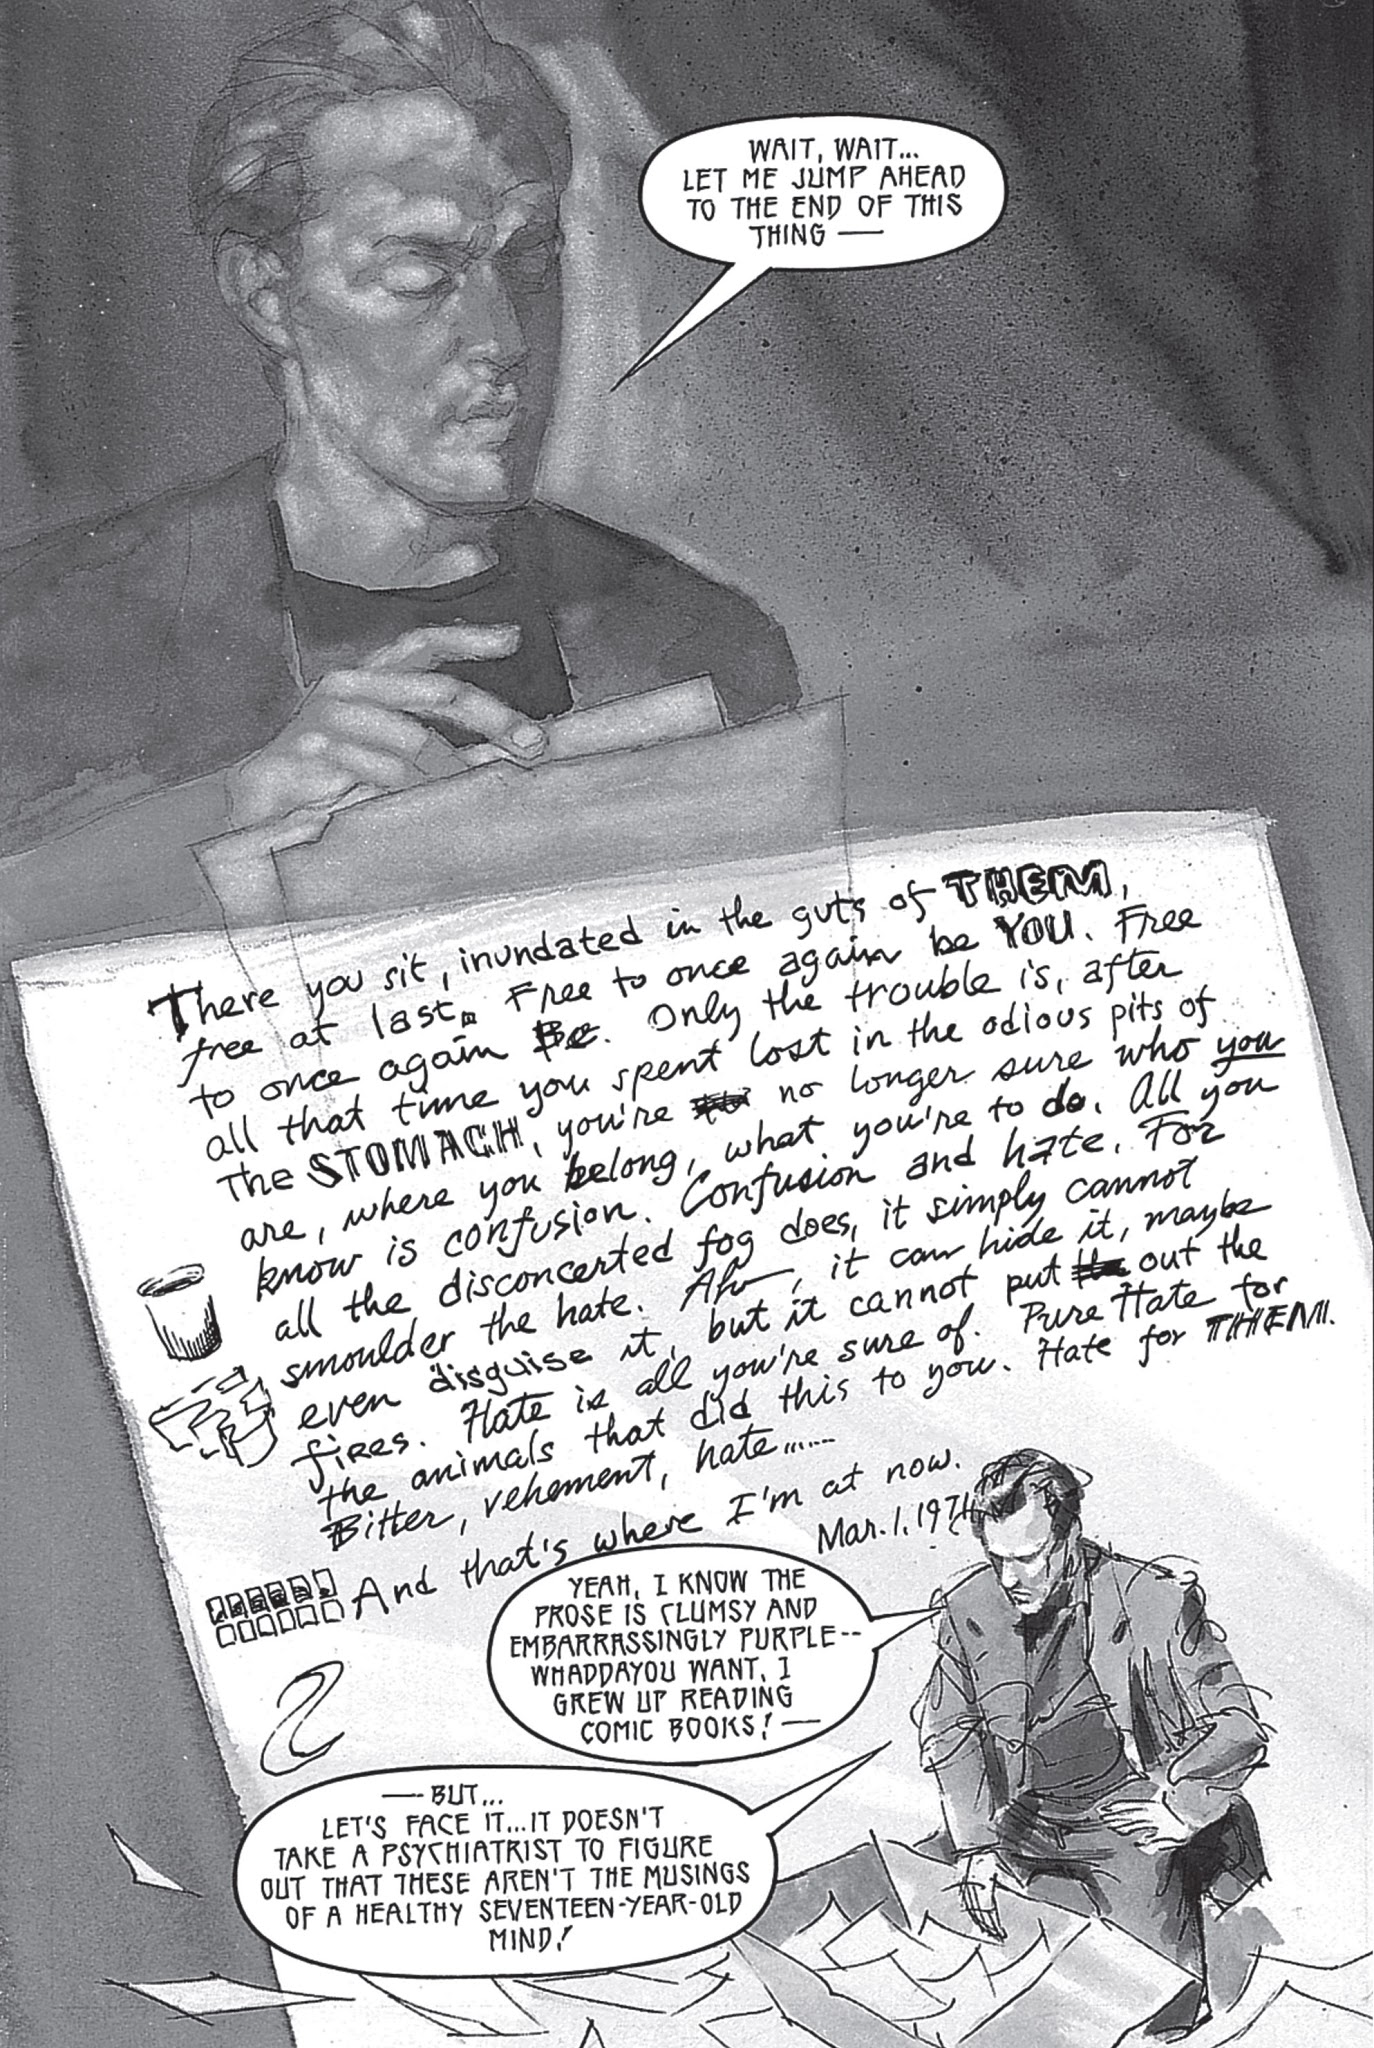 WAIT, WAIT...
LET ME JUMP AHEAD
TO THE END OF THIS
THING —
There you sit, inundated in the guts of THEM,
free at last. Free to once again be YOU. Free
to once again Be. Only the trouble is, after
all that time you spent lost in the odious pits of
The STOMACH, you're no longer sure who you
are, where you belong, what you're to do. All you
know is confusion. Confusion and hate. For
all the disconcerted fog does, it simply cannot
smoulder the hate. Ah—, it can hide it, maybe
even disguise it, but it cannot put out the
fires. Hate is all you're sure of. Pure Hate for
the animals that did this to you. Hate for THEM.
Bitter, vehement, hate.......
And that's where I'm at now.
Mar. 1, 1971
YEAH, I KNOW THE
PROSE IS CLUMSY AND
EMBARRASSINGLY PURPLE--
WHADDAYOU WANT, I
GREW UP READING
COMIC BOOKS! —
— BUT...
LET'S FACE IT...IT DOESN'T
TAKE A PSYCHIATRIST TO FIGURE
OUT THAT THESE AREN'T THE MUSINGS
OF A HEALTHY SEVENTEEN-YEAR-OLD
MIND!